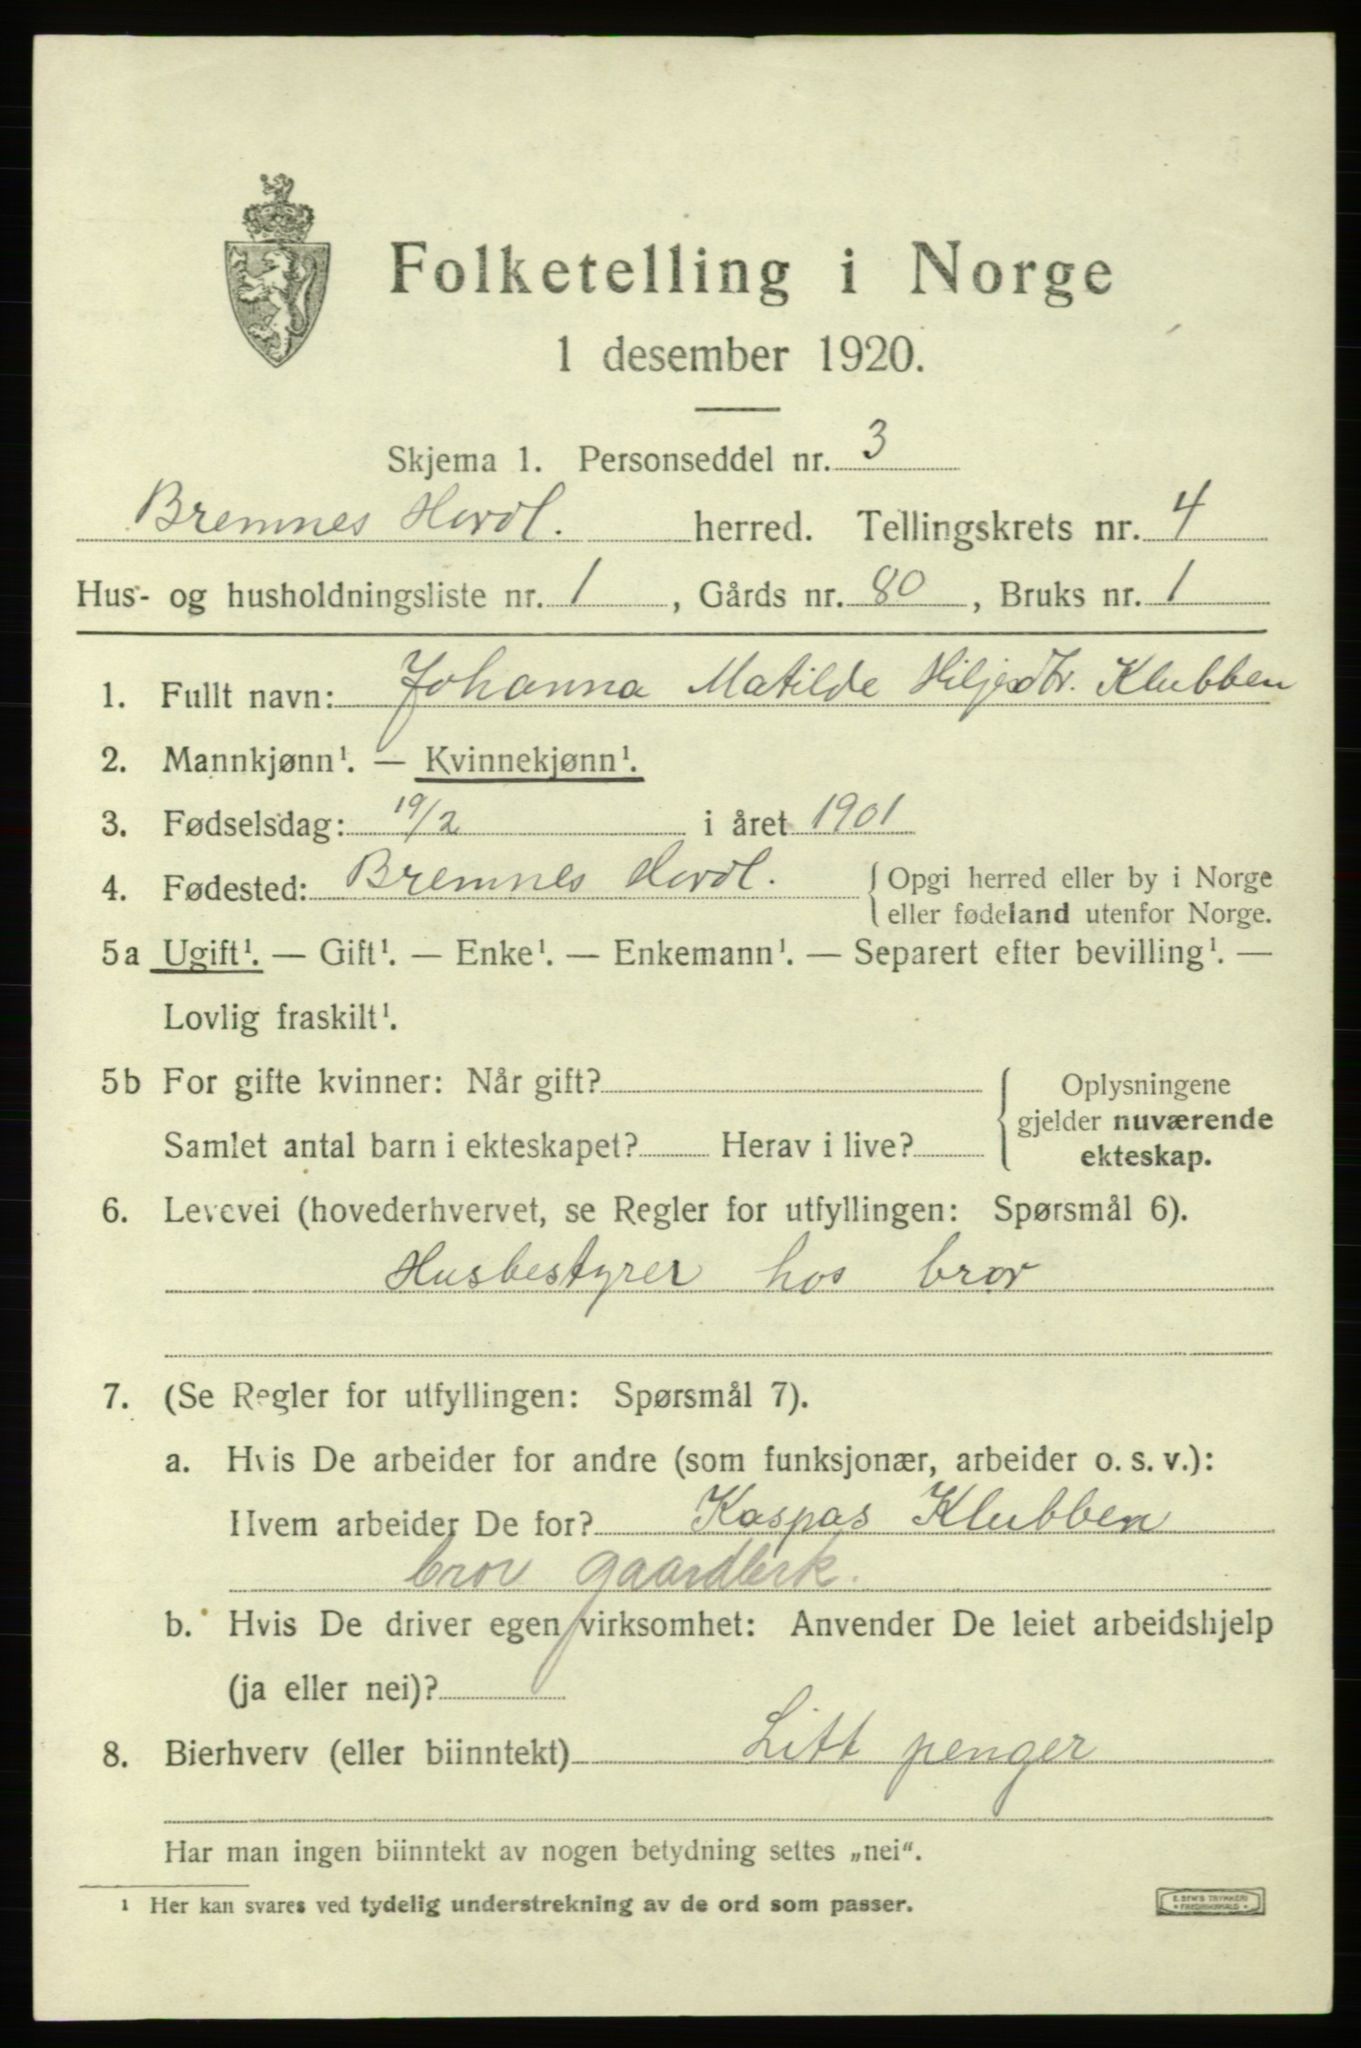 Folketelling i Norge
1 desember 1920.
Skjema 1. Personseddel nr. 3
Bremnes Hordl. herred. Tellingskrets nr. 4
Hus- og husholdningsliste nr. 1, Gårds nr. 80, Bruks nr. 1
1. Fullt navn: Johanna Matilde Klubben
2. Mannkjønn¹. — Kvinnekjønn¹.
3. Fødselsdag: 19/2 i året 1901
4. Fødested: Bremnes Hordl. { Opgi herred eller by i Norge
eller fødeland utenfor Norge.
5a Ugift¹. — Gift¹. — Enke¹. — Enkemann¹. — Separert efter bevilling¹. —
Lovlig fraskilt¹.
5b For gifte kvinner: Når gift?
Samlet antal barn i ekteskapet? Herav i live?
{ Oplysningene
gjelder nuværende
ekteskap.
6. Levevei (hovederhvervet, se Regler for utfyllingen: Spørsmål 6).
Husbestyrer hos bror
7. (Se Regler for utfyllingen: Spørsmål 7).
a. Hvis De arbeider for andre (som funksjonær, arbeider o. s. v.):
Hvem arbeider De for? Kaspas Klubben
bror gaardbrk.
b. Hvis De driver egen virksomhet: Anvender De leiet arbeidshjelp
(ja eller nei)?
8. Bierhverv (eller biinntekt) Litt penger
Har man ingen biinntekt av nogen betydning settes „nei".
¹ Her kan svares ved tydelig understrekning av de ord som passer.